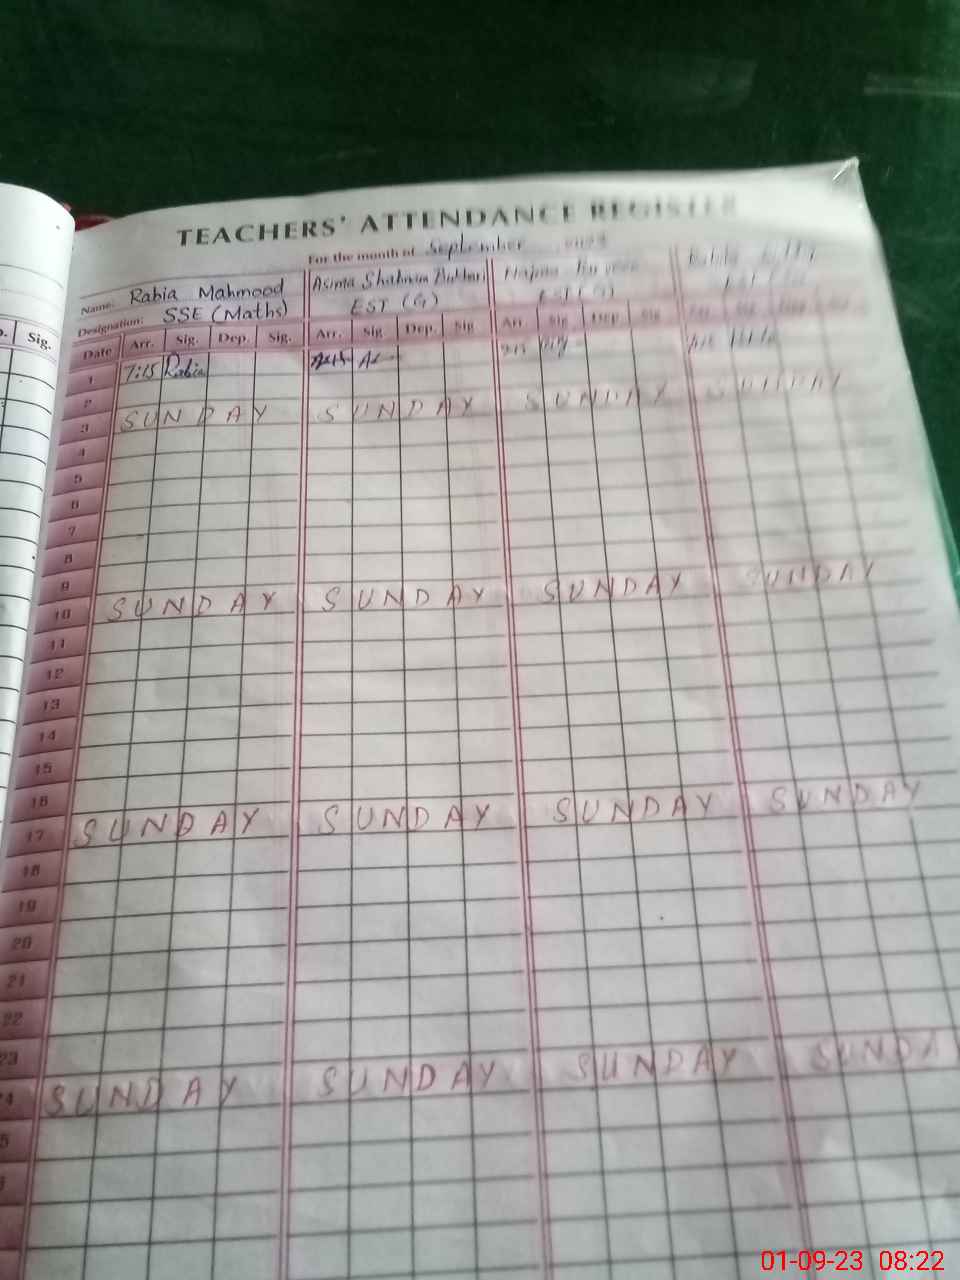 TEACHERS' ATTENDANCE REGISTER
For the month of September 2023
Name: Rabia Mahmood Asima Shahnum Bukhari Najma
Designation: SSE (Maths) EST (G) EST (G)
Date Arr. Sig. Dep. Sig. Arr. Sig Dep. Sig Arr Sig Dep Sig
. Sig.
1 7:15 Rabia
2
3 SUNDAY SUNDAY SUNDAY SUNDAY
4
5
6
7
8
9
10 SUNDAY SUNDAY SUNDAY SUNDAY
11
12
13
14
15
16
17 SUNDAY SUNDAY SUNDAY SUNDAY
18
19
20
21
22
23
4 SUNDAY SUNDAY SUNDAY SUNDA
5
01-09-23 08:22